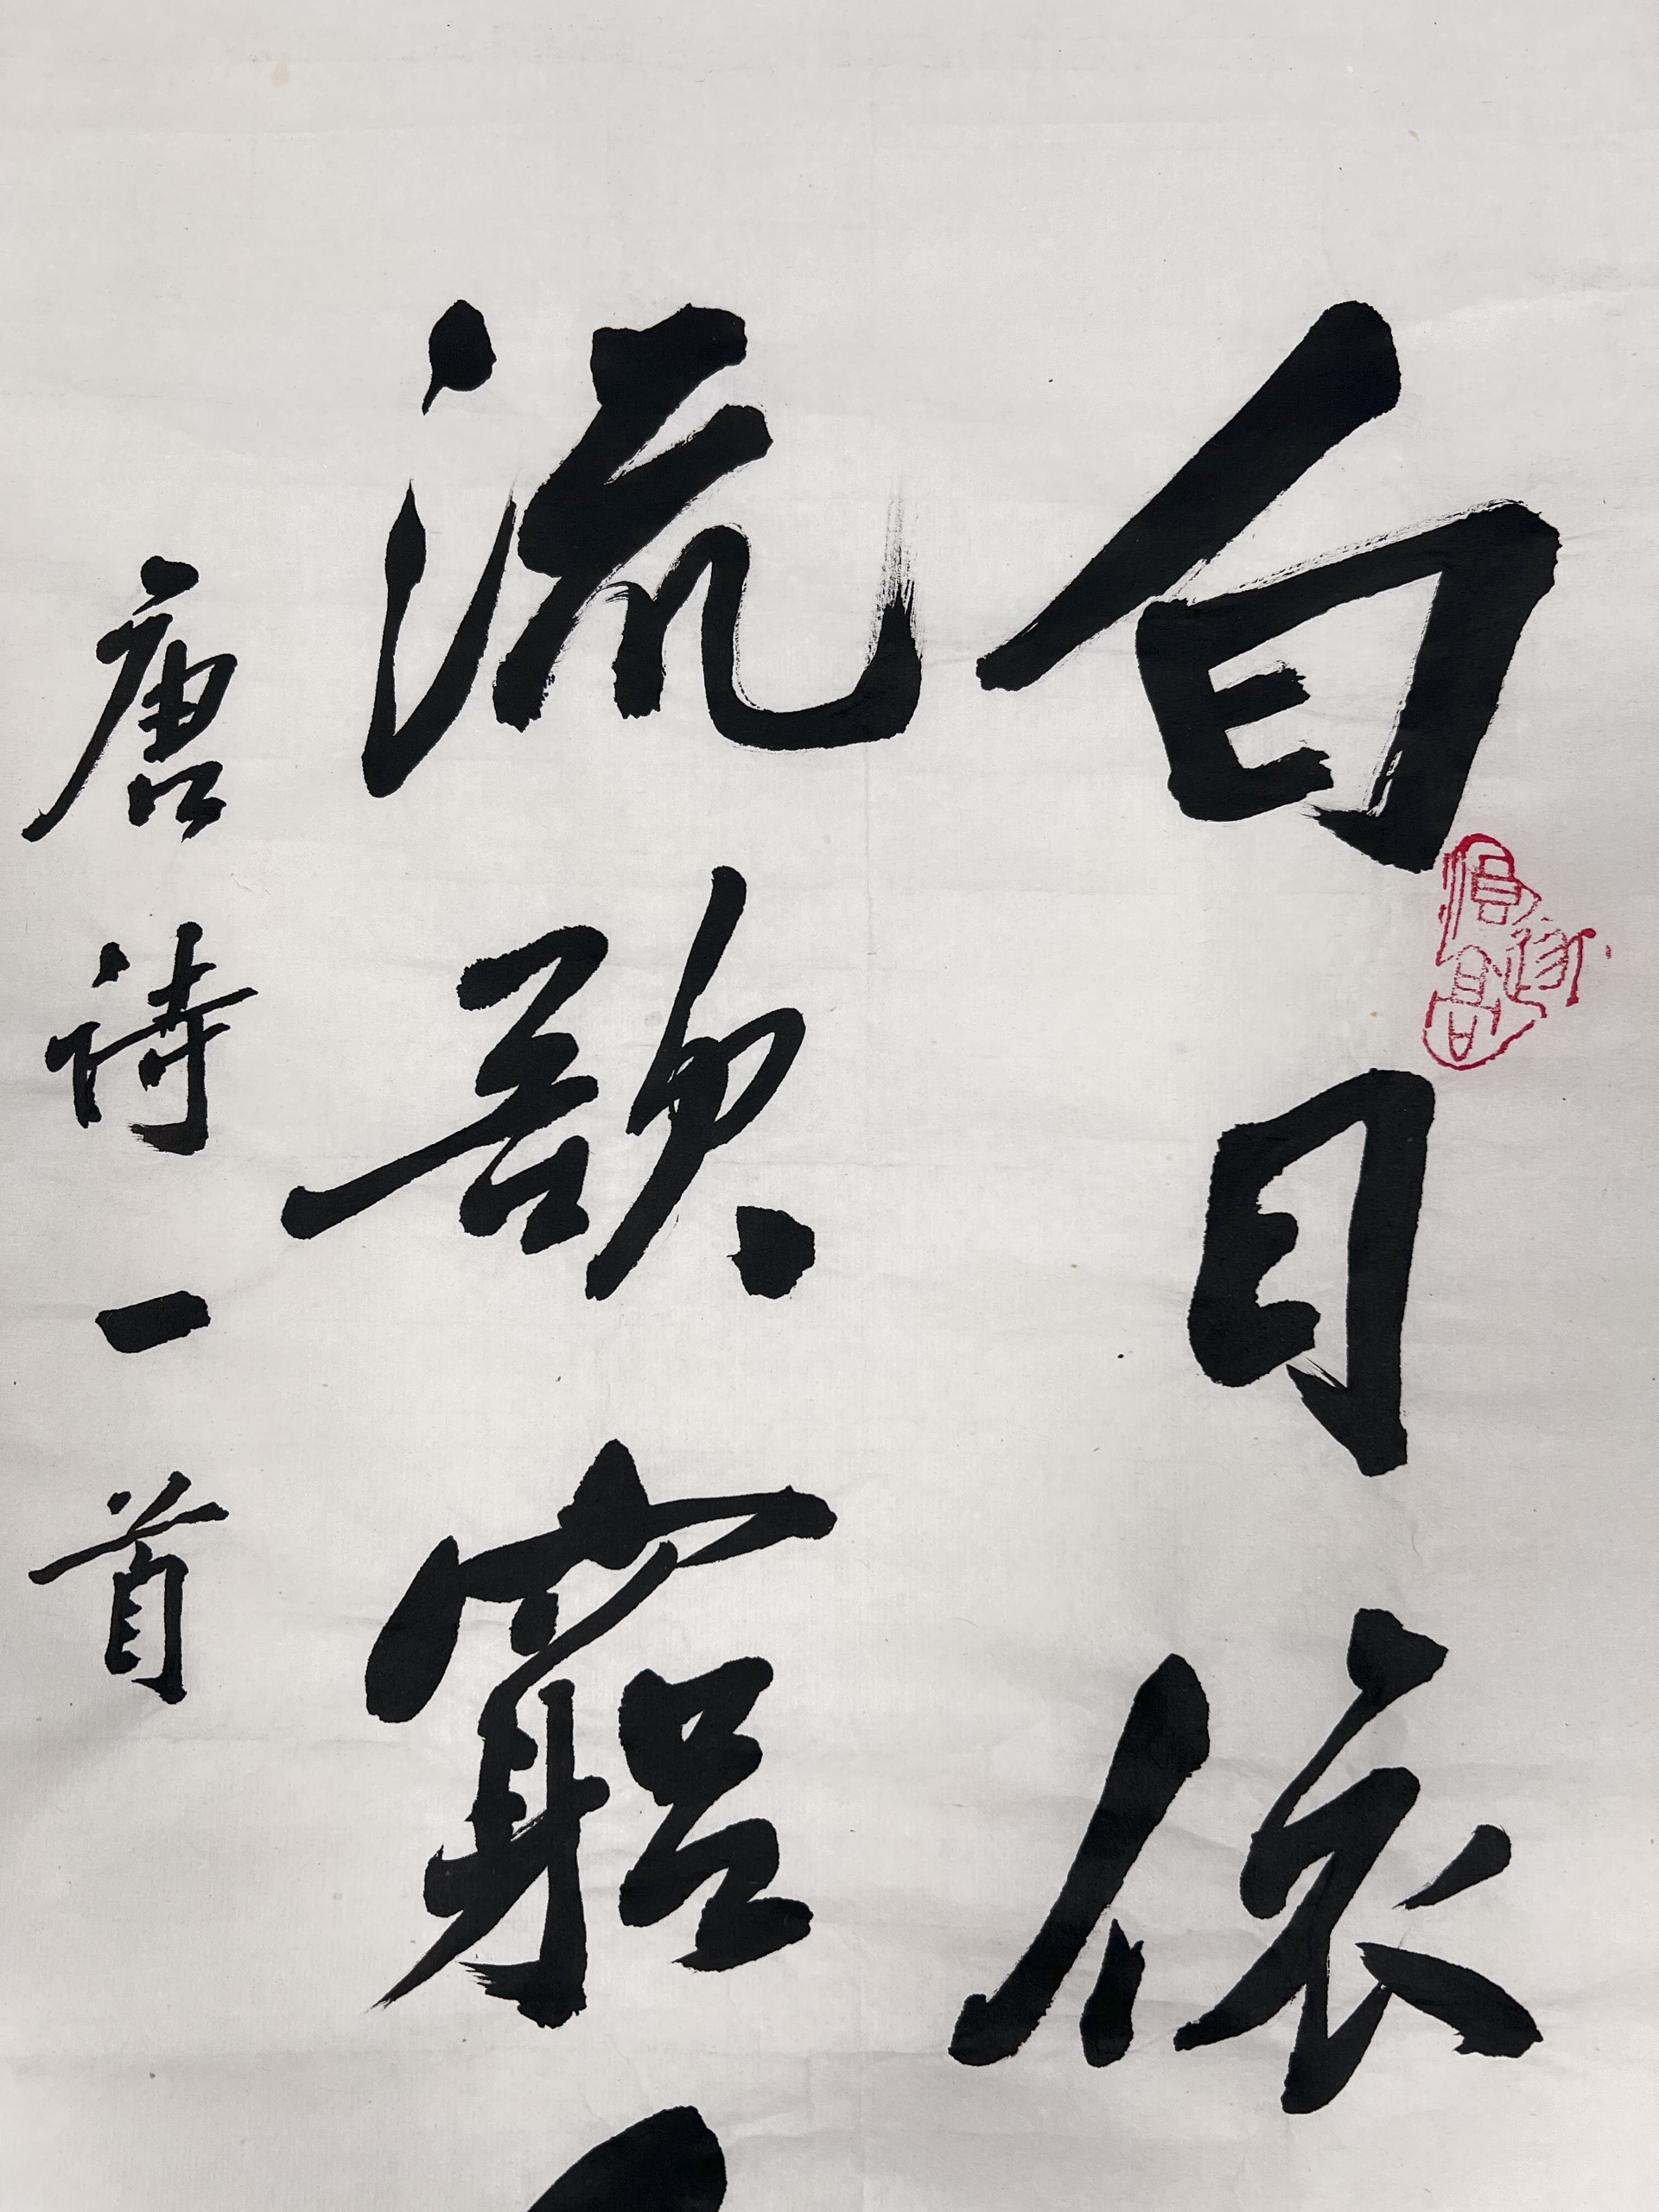 白日依
流欲窮
唐詩一首